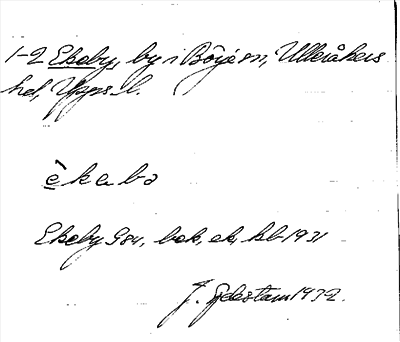 1-2 Ekeby, by i Börje sn, Ulleråkers
hd, Upps. l.
èkabə
Ekeby G84, bok, ek, kb 1931
J. Gjelestam 1932.